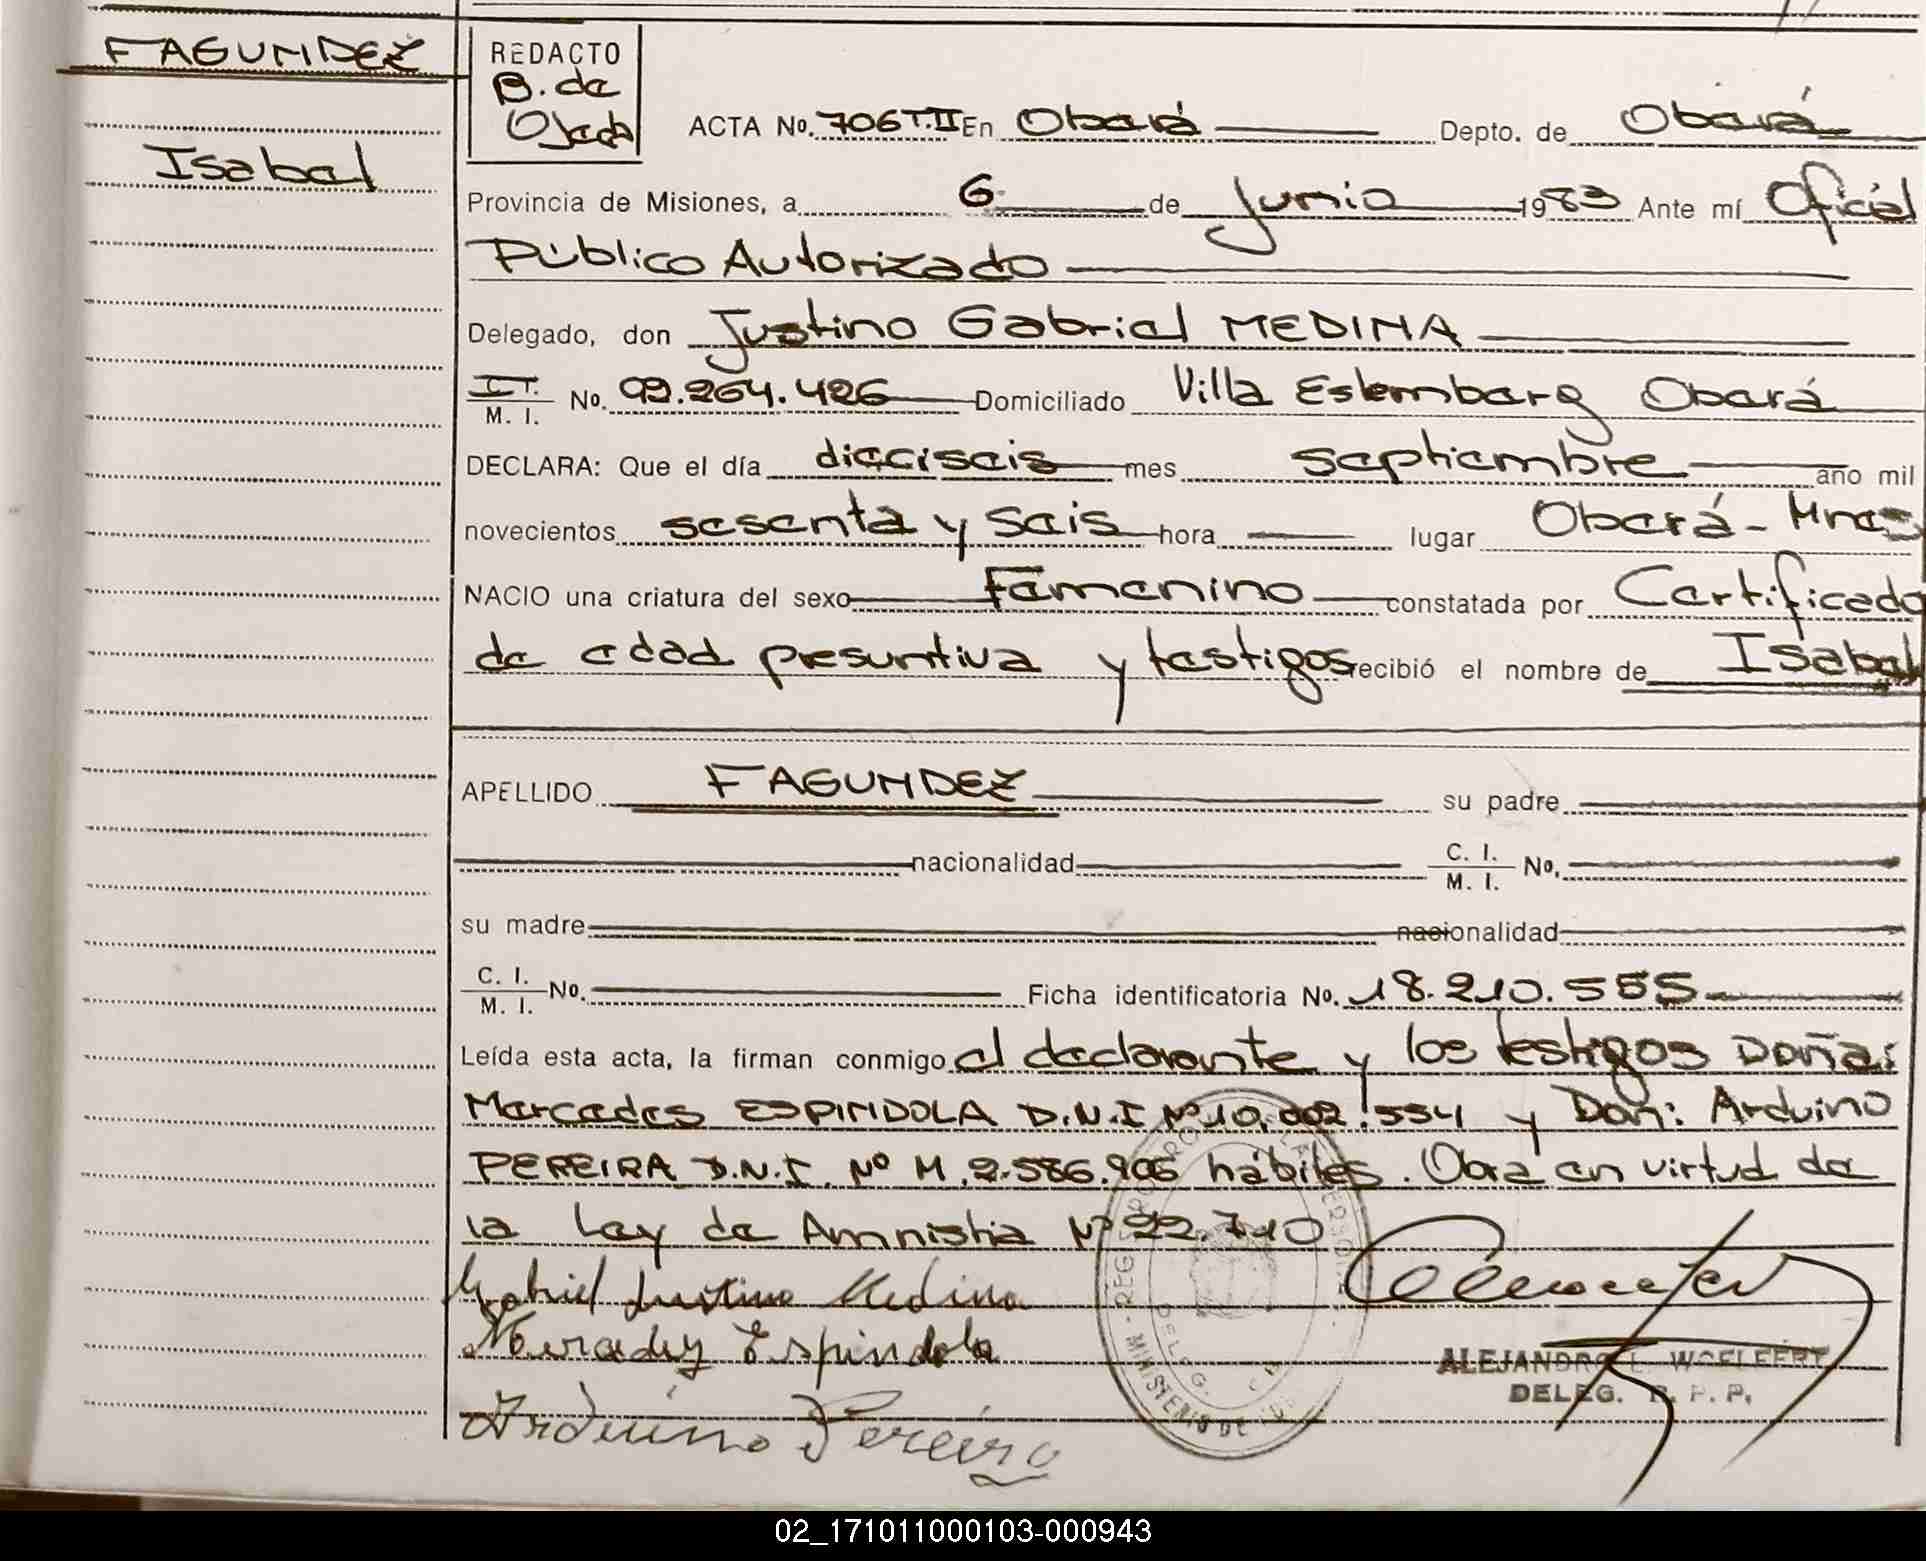 FAGUNDEZ
Isabel
REDACTO
B. de
Ojeda
ACTA No. 706 T.II En Oberá Depto. de Oberá
Provincia de Misiones, a 6 de Junio 1983 Ante mí Oficial
Público Autorizado
Delegado, don Justino Gabriel MEDINA
No. 92.264.426 Domiciliado Villa Eslembarg Oberá
M. I.
DECLARA: Que el día dieciseis mes septiembre año mil
novecientos sesenta y seis hora lugar Oberá - Mnes
NACIO una criatura del sexo Femenino constatada por Certificado
de edad presuntiva y testigos recibió el nombre de Isabel
APELLIDO FAGUNDEZ su padre
nacionalidad C. I. No.
M. I.
su madre nacionalidad
C. I. No. Ficha identificatoria No. 18.210.555
M. I.
Leída esta acta, la firman conmigo el declarante y los testigos Doña:
Mercedes ESPINDOLA D.N.I Nº 10.002.554 y Don: Arduino
PEREIRA D.N.I. Nº M.2.586.906 hábiles. Obra en virtud de
la Ley de Amnistia Nº 22.710
Gabriel Justino Medina
Espindola
Arduino Pereira
ALEJANDRO E. WOELFERT
DELEG. R. P. P.
MINISTERIO DE
DELEG.
02_171011000103-000943